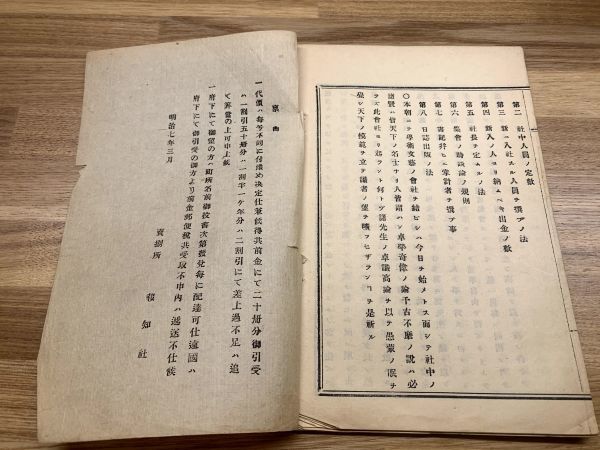 第二 社中人員ノ定數
第三 新ニ入社スル人員ヲ撰フノ法
第四 新入ノ人ヨリ納ムヘキ出金ノ數
第五 社長ヲ定ムルノ法
第六 集會ノ時談論ノ規則
第七 書記幷ヒニ會計者ヲ撰フ事
第八 日誌出版ノ法
〇本朝ニテ學術文藝ノ會社ヲ結ヒシハ今日ヲ始メトス而シテ社中ノ
諸賢ハ皆天下ノ名士ナリ人皆謂ハン卓學奇偉ノ論千古不磨ノ說ハ必
ラス此會社ヨリ起ラント何トソ諸先生ノ卓識高論ヲ以テ愚蒙ノ眠ヲ
覺シ天下ノ模範ヲ立テ識者ノ望ヲ曠フセザランヿヲ是祈ル
稟告
一代價ハ每号不同に付纒め決定仕兼候得共前金にて二十册分御引受
ハ一割引五十册分ハ一割半一ケ年分ハ二割引にて差上過不足ハ追
て算當の上可申上候
一府下にて御望の方ハ町所名前御投書次第發兌每に配達可仕遠國ハ
府下にて御引受の御方より前金郵便稅共受取不申內ハ遞送不仕候
明治七年三月
賣捌所 報知社